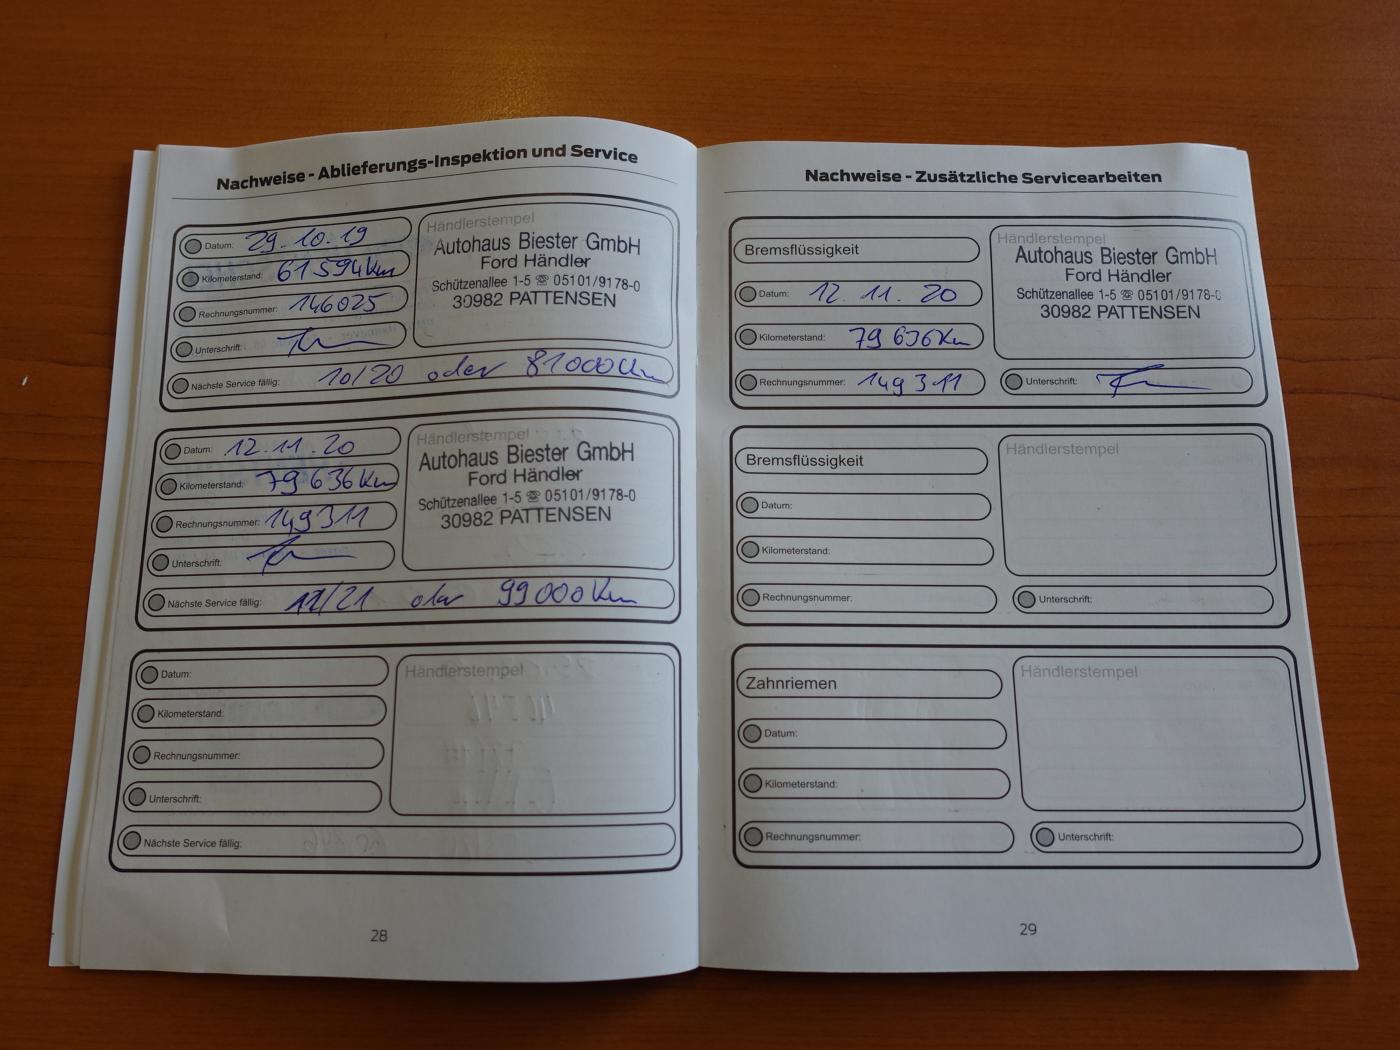 Nachweise - Ablieferungs-Inspektion und Service
Datum: 29.10.19
Kilometerstand: 61594 Km
Rechnungsnummer: 146025
Unterschrift:
Nächste Service fällig: 10/20 oder 81000 Km
Händlerstempel
Autohaus Biester GmbH
Ford Händler
Schützenallee 1-5 ☏ 05101/9178-0
30982 PATTENSEN
Datum: 12.11.20
Kilometerstand: 79636 Km
Rechnungsnummer: 149311
Unterschrift:
Nächste Service fällig: 11/21 oder 99000 Km
Händlerstempel
Autohaus Biester GmbH
Ford Händler
Schützenallee 1-5 ☏ 05101/9178-0
30982 PATTENSEN
Datum:
Kilometerstand:
Rechnungsnummer:
Unterschrift:
Nächste Service fällig:
Händlerstempel
28
Nachweise - Zusätzliche Servicearbeiten
Bremsflüssigkeit
Datum: 12.11.20
Kilometerstand: 79636 Km
Rechnungsnummer: 149311
Händlerstempel
Autohaus Biester GmbH
Ford Händler
Schützenallee 1-5 ☏ 05101/9178-0
30982 PATTENSEN
Unterschrift:
Bremsflüssigkeit
Datum:
Kilometerstand:
Rechnungsnummer:
Händlerstempel
Unterschrift:
Zahnriemen
Datum:
Kilometerstand:
Rechnungsnummer:
Händlerstempel
Unterschrift:
29